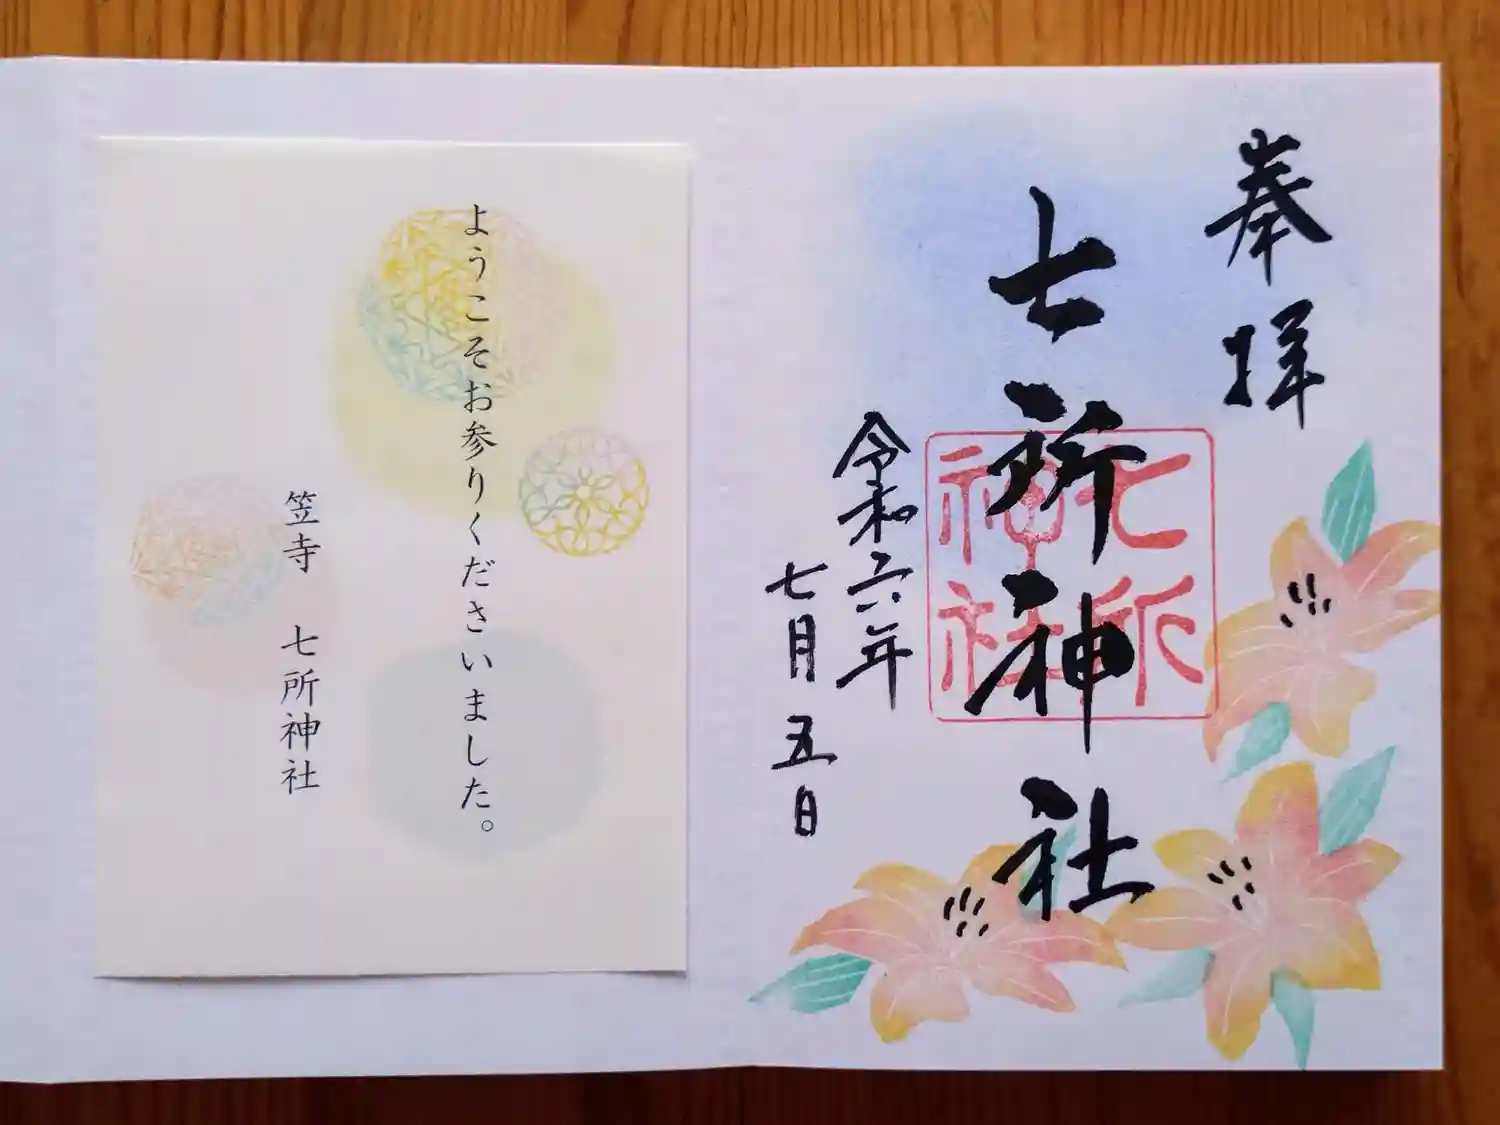 奉拝
七所神社
七所
神社
令和六年
七月五日
ようこそお参りくださいました。
笠寺 七所神社